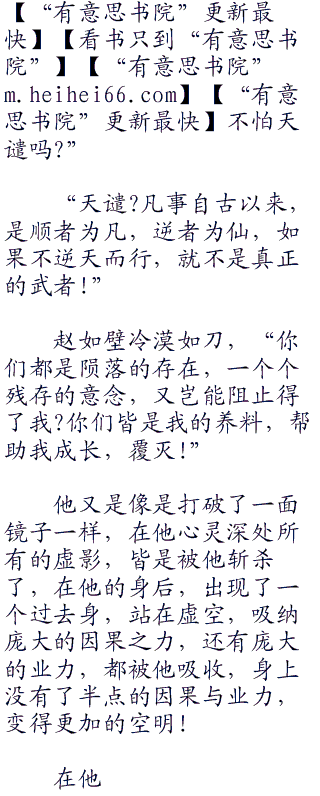 【“有意思书院”更新最
快】【看书只到“有意思书
院”】【“有意思书院”
m.heihei66.com】【“有意
思书院”更新最快】不怕天
谴吗?”
“天谴?凡事自古以来,
是顺者为凡，逆者为仙，如
果不逆天而行，就不是真正
的武者!”
赵如壁冷漠如刀，“你
们都是陨落的存在，一个个
残存的意念，又岂能阻止得
了我?你们皆是我的养料，帮
助我成长，覆灭!”
他又是像是打破了一面
镜子一样，在他心灵深处所
有的虚影，皆是被他斩杀
了，在他的身后，出现了一
个过去身，站在虚空，吸纳
庞大的因果之力，还有庞大
的业力，都被他吸收，身上
没有了半点的因果与业力，
变得更加的空明!
在他